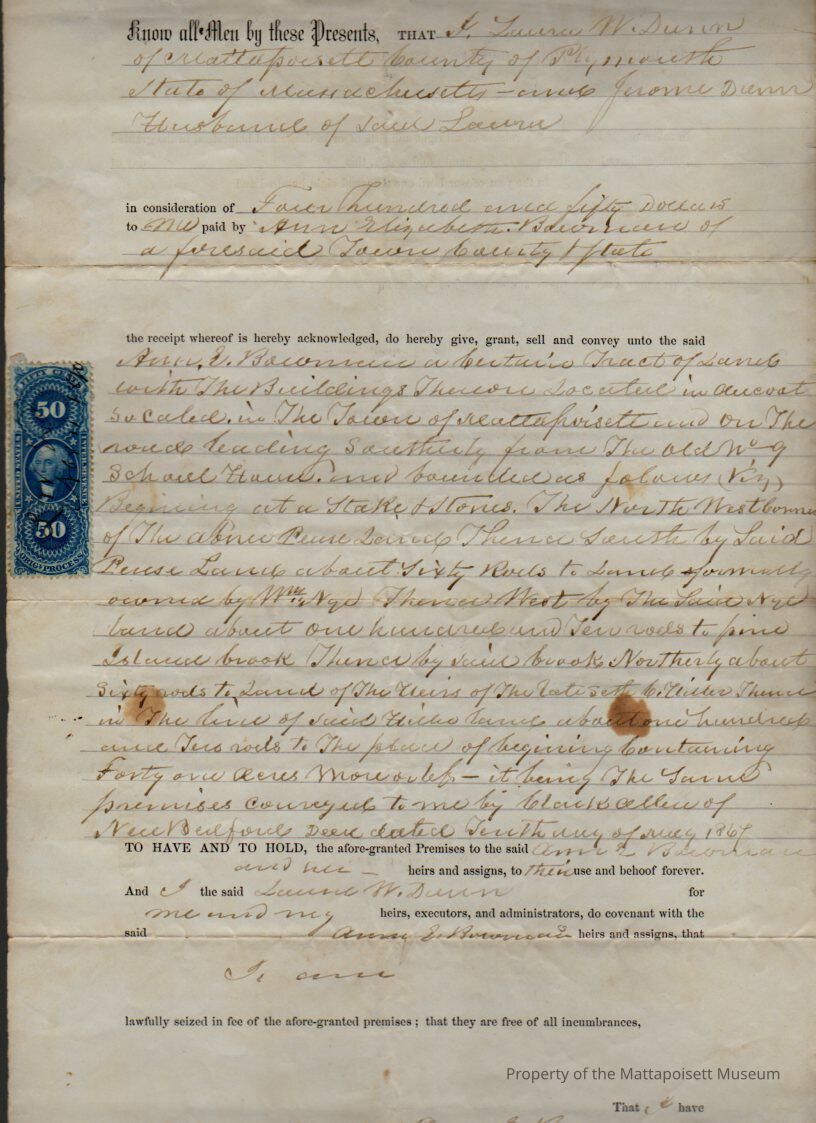 Know all Men by these Presents, THAT I, Laura W. Dunn
of Mattapoisett County of Plymouth
State of Massachusetts - and Jerome Dunn
Husband of said Laura
in consideration of Four hundred and fifty Dollars
to me paid by Ann Elizabeth Bowman of
a foresaid Town County & State
the receipt whereof is hereby acknowledged, do hereby give, grant, sell and convey unto the said
Ann. E. Bowman a Certain Tract of Land
with The Buildings Thereon Located in
so caled. in The Town of Mattapoisett and on The
road leading Southerly from The old No 9
School House. and bounded as folows (Viz)
Begining at a Stake & Stones. The North West Corner
of The abner Pease Land Thence South by Said
Pease Land about Sixty Rods to Land formally
owned by Wm Nye Thence West by The Said Nye
land about one hundred and Ten rods to pine
Island brook Thence by said brook Northerly about
Sixty rods to Land of The Heirs of The late Seth C. Hiller Thence
in The line of said Hiller land about one hundred
and Two rods to The place of begining Containing
Forty one Acres More or less - it being The Same
premises conveyed to me by Clark Allen of
New Bedford Deed dated Tenth day of May 1867
TO HAVE AND TO HOLD, the afore-granted Premises to the said Ann E Bowman
and her heirs and assigns, to their use and behoof forever.
And I the said Laura W. Dunn for
me and my heirs, executors, and administrators, do covenant with the
said Ann E. Bowman heirs and assigns, that
I am
lawfully seized in fee of the afore-granted premises; that they are free of all incumbrances,
That I have
50
50
Property of the Mattapoisett Museum